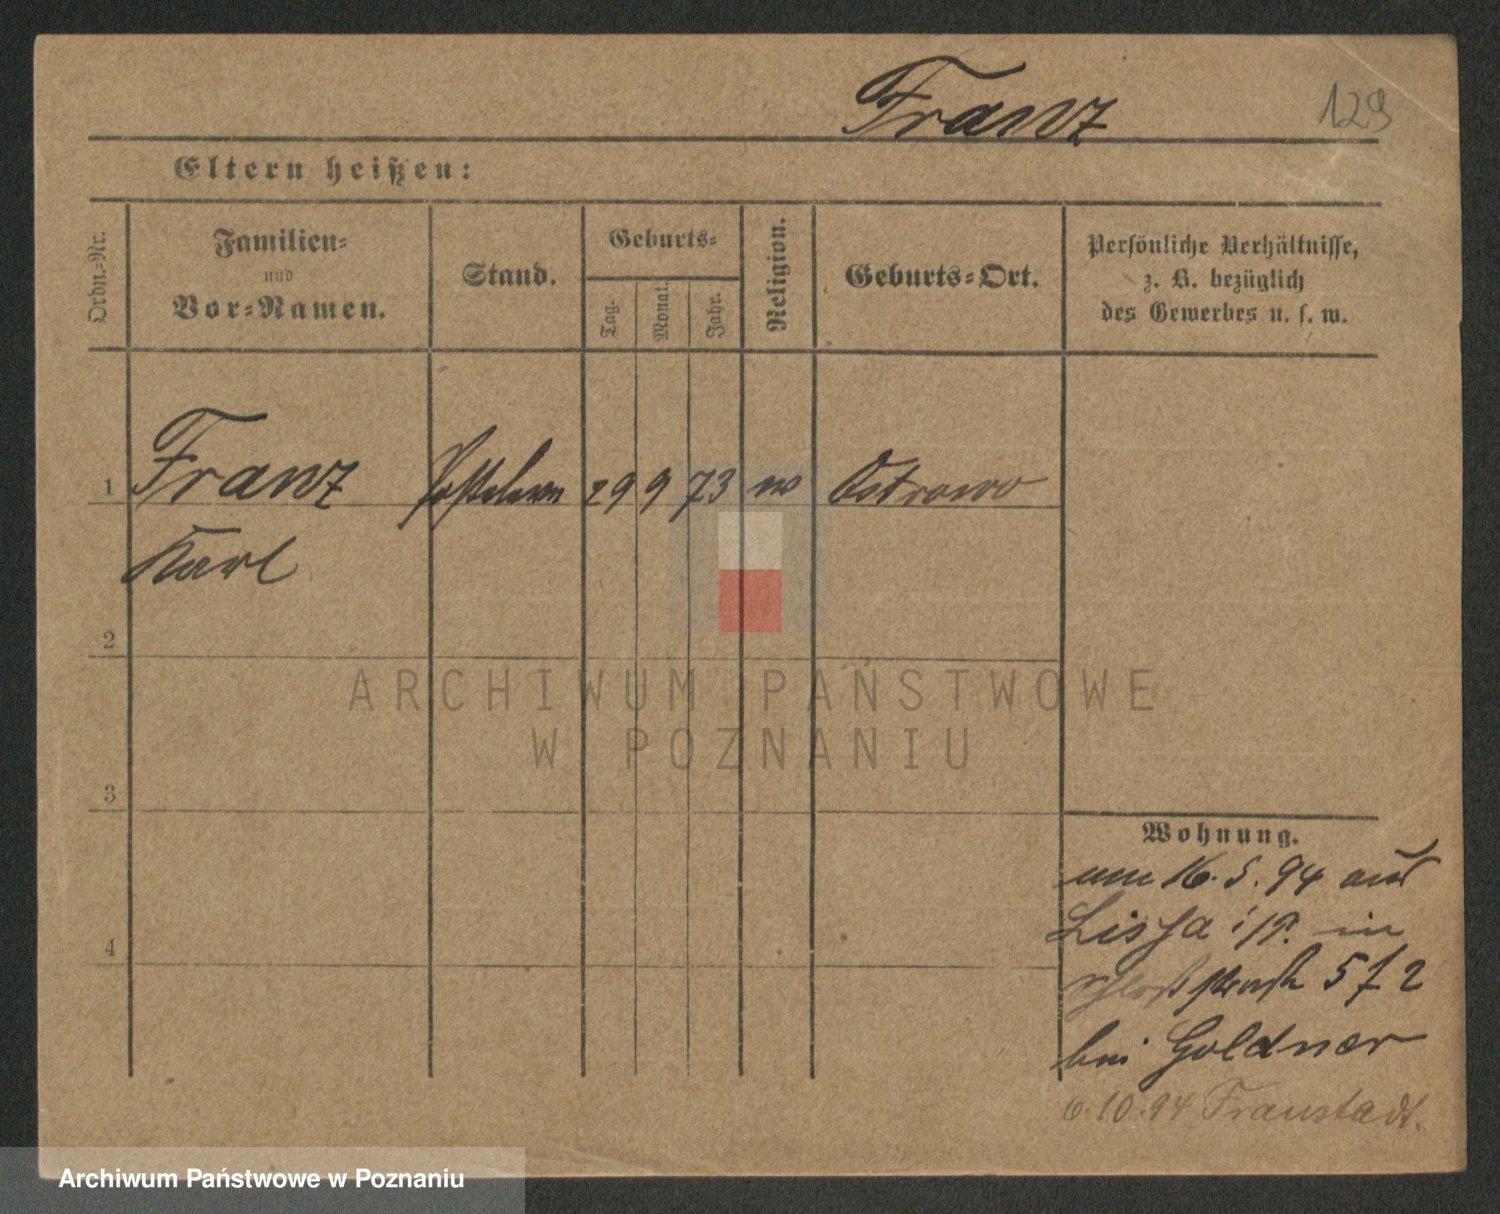 Franz
129
Eltern heißen:
Ordn.-Nr.
Familien-
und
Vor-Namen.
Stand.
Geburts-
Tag.
Monat.
Jahr.
Religion.
Geburts-Ort.
Persönliche Verhältnisse,
z. B. bezüglich
des Gewerbes u. s. w.
1 Franz 29 9 73 Ostrowo
Karl
2
3
4
ARCHIWUM PAŃSTWOWE
W POZNANIU
Wohnung.
am 16. 5. 94 aus
Lissa i/P. in
Schloßstraße 5 f 2
bei Goldner
6.10.94 Fraustadt.
Archiwum Państwowe w Poznaniu